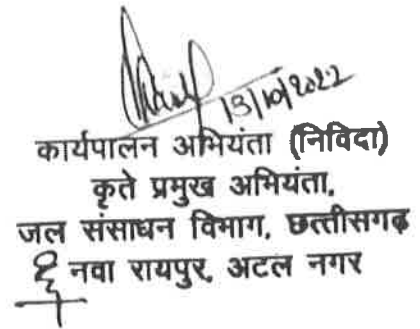 13/10/2022
कार्यपालन अभियंता (निविदा)
कृते प्रमुख अभियंता,
जल संसाधन विभाग, छत्तीसगढ़
नवा रायपुर, अटल नगर